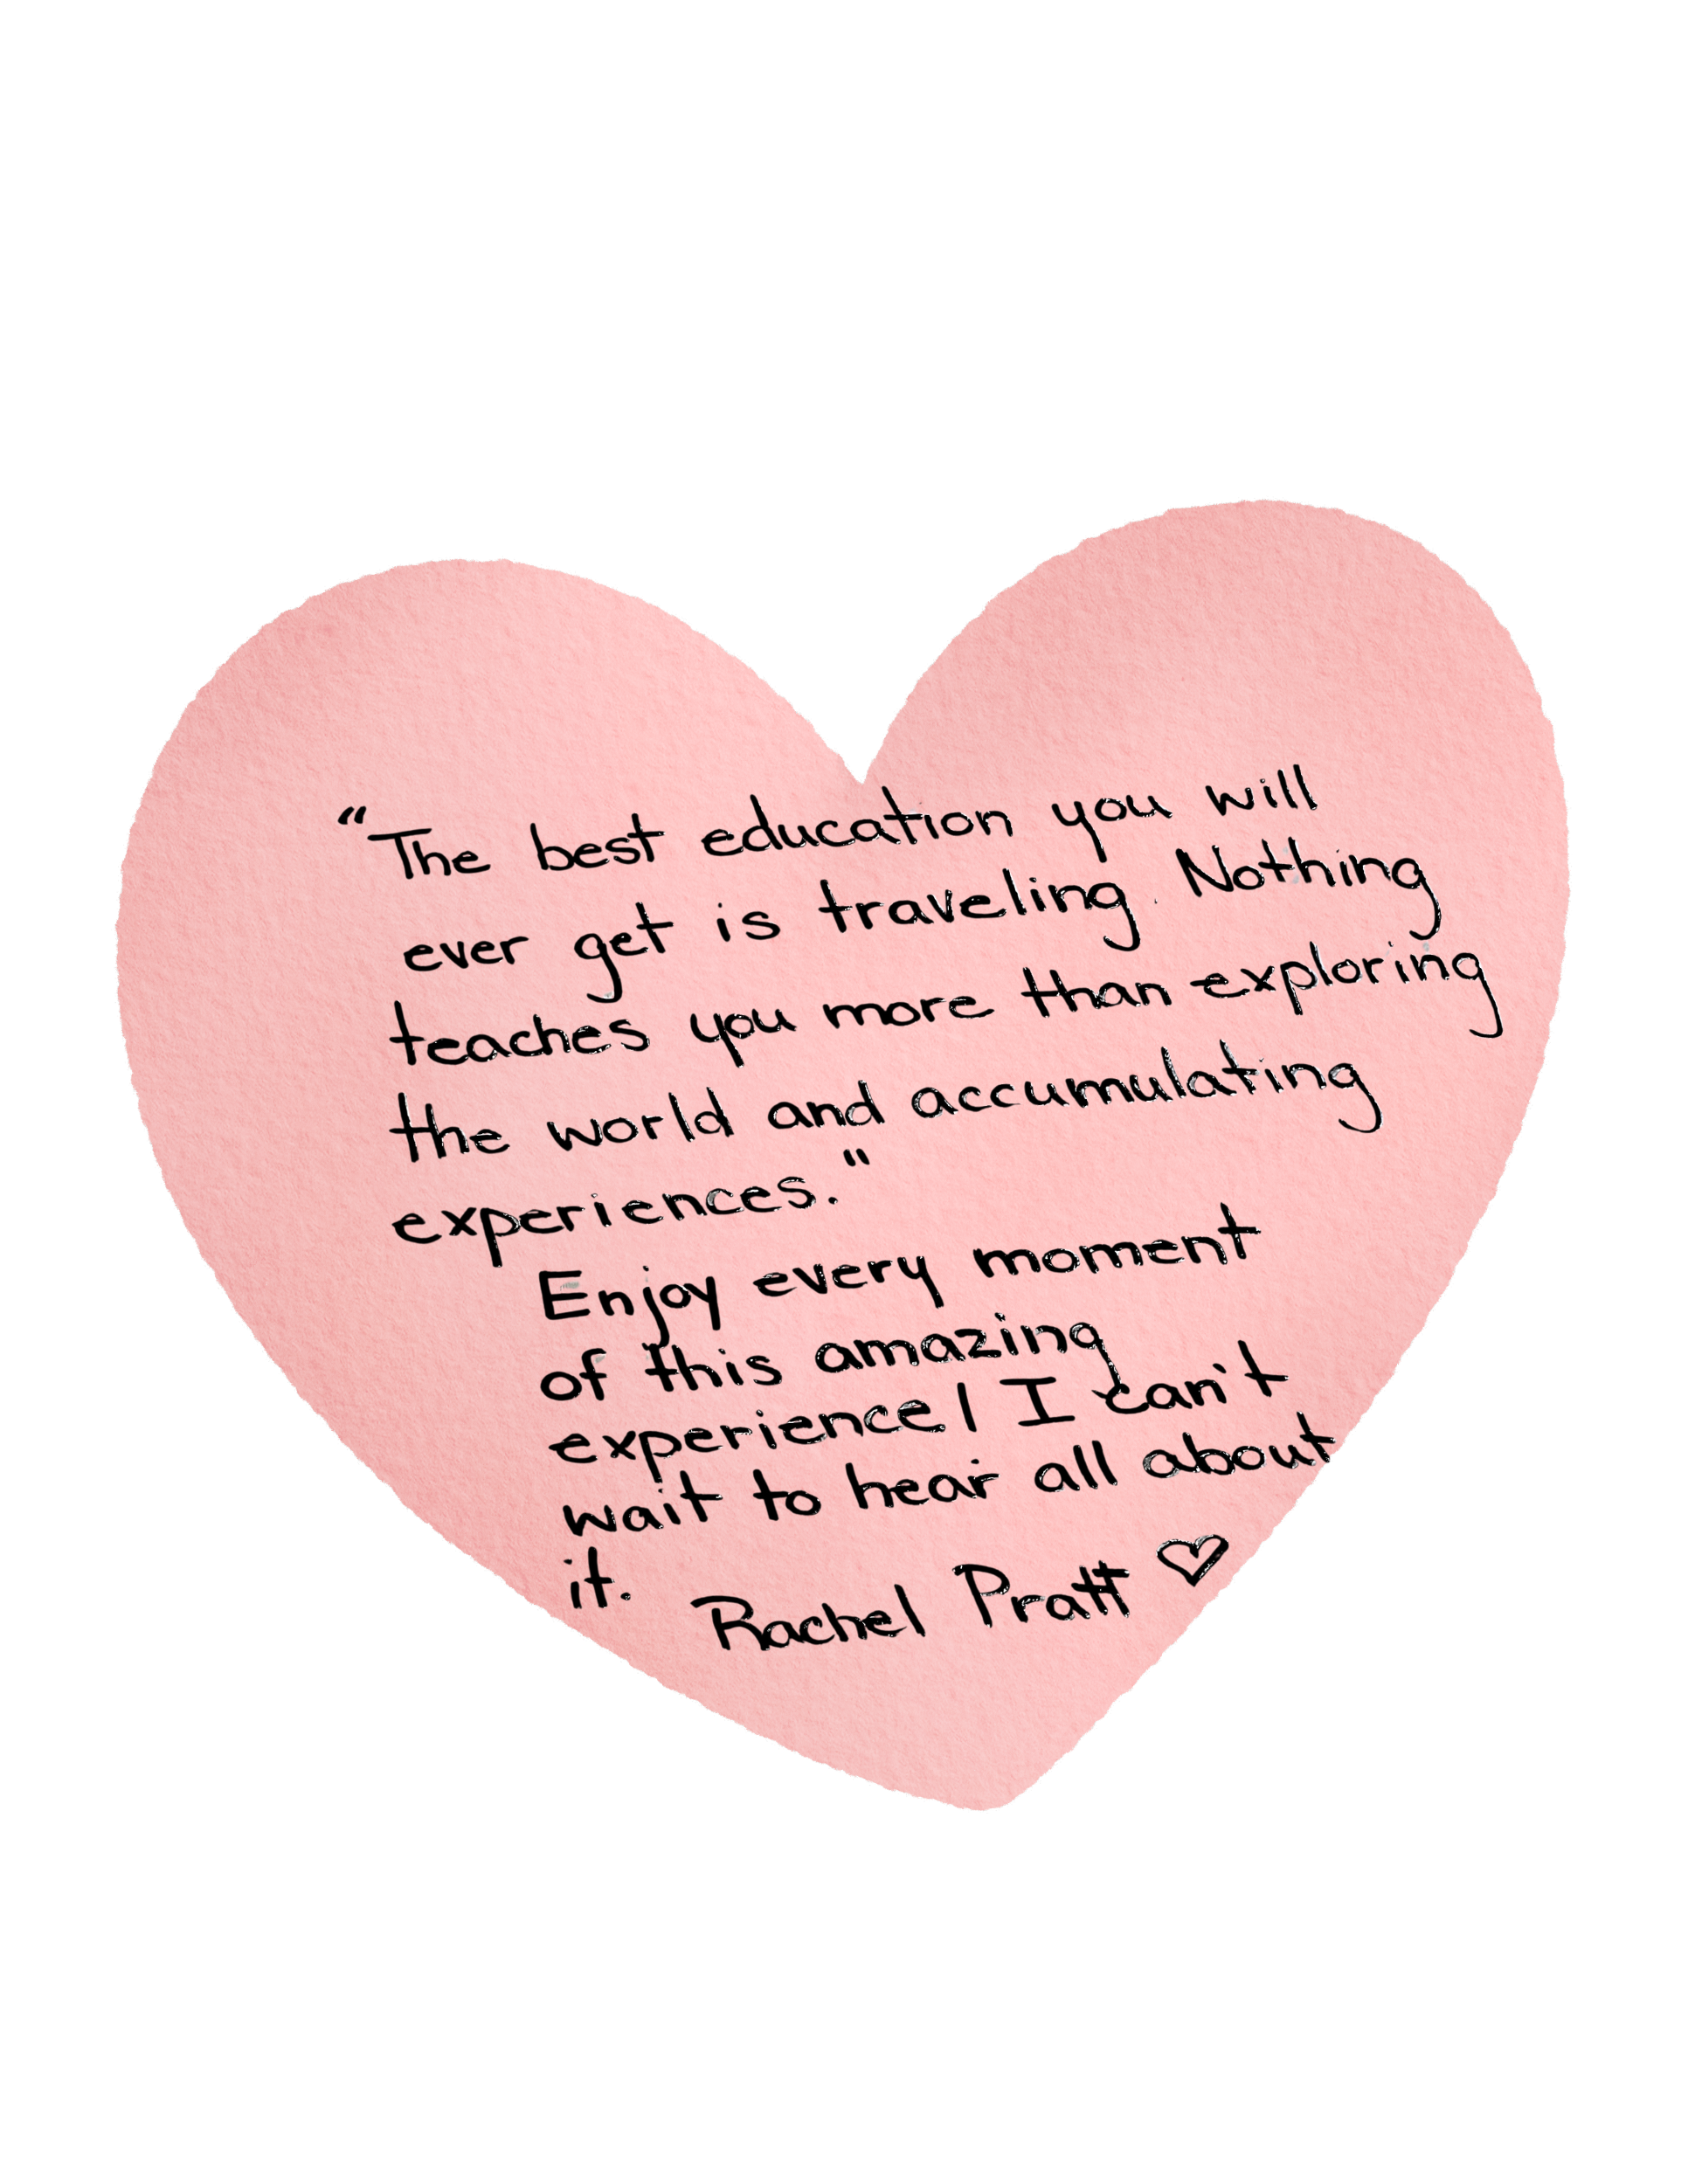 “The best education you will
ever get is traveling. Nothing
teaches you more than exploring
the world and accumulating
experiences."
Enjoy every moment
of this amazing
experience! I can't
wait to hear all about
it.
Rachel Pratt ♡